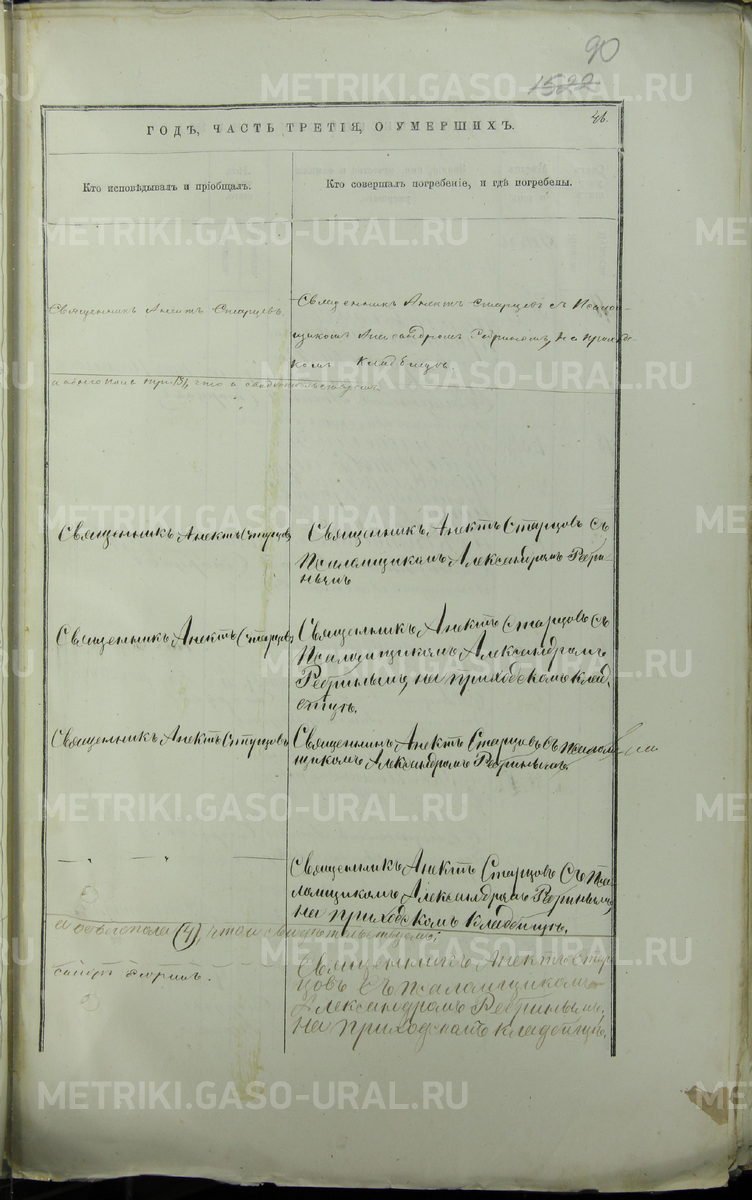 90
1522
ГОДЪ, ЧАСТЬ ТРЕТІЯ, О УМЕРШИХЪ.
Кто исповѣдывалъ и пріобщалъ.
Кто совершалъ погребеніе, и гдѣ погребены.
Священникъ Анектъ Старцевъ.
Священникъ Анектъ Старцевъ съ Псалом-
щикомъ Александромъ на приход-
комъ Кладбищѣ.
что и свидѣтельствуемъ
Священникъ Анектъ Старцовъ
Священникъ, Анектъ Старцовъ съ
Псаломщикомъ, Александромъ Ребри-
нымъ
Священникъ, Анектъ Старцовъ
Священникъ, Анектъ Старцовъ съ
Псаломщикомъ, Александромъ
Ребринымъ, на приходскомъ клад-
бищѣ.
Священникъ, Анектъ Старцовъ
Священникъ, Анектъ Старцовъ съ Псалом-
щикомъ Александромъ Ребринымъ.
— „ „ —
Священникъ, Анектъ Старцовъ съ Пса-
ломщикомъ, Александромъ Ребринымъ,
на приходскомъ кладбищѣ.
(4), что и свидѣтельствуемъ;
Священникъ Анектъ Стар-
цовъ съ псаломщикомъ
Александромъ Ребринымъ,
на приходскомъ кладбищѣ.
METRIKI.GASO-URAL.RU